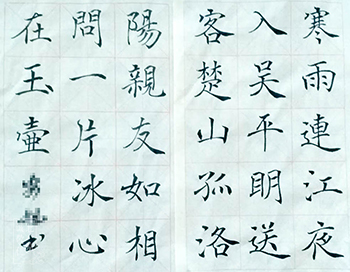 寒雨連江夜
入吴平明送
客楚山孤洛
陽親友如相
問一片冰心
在玉壺
书